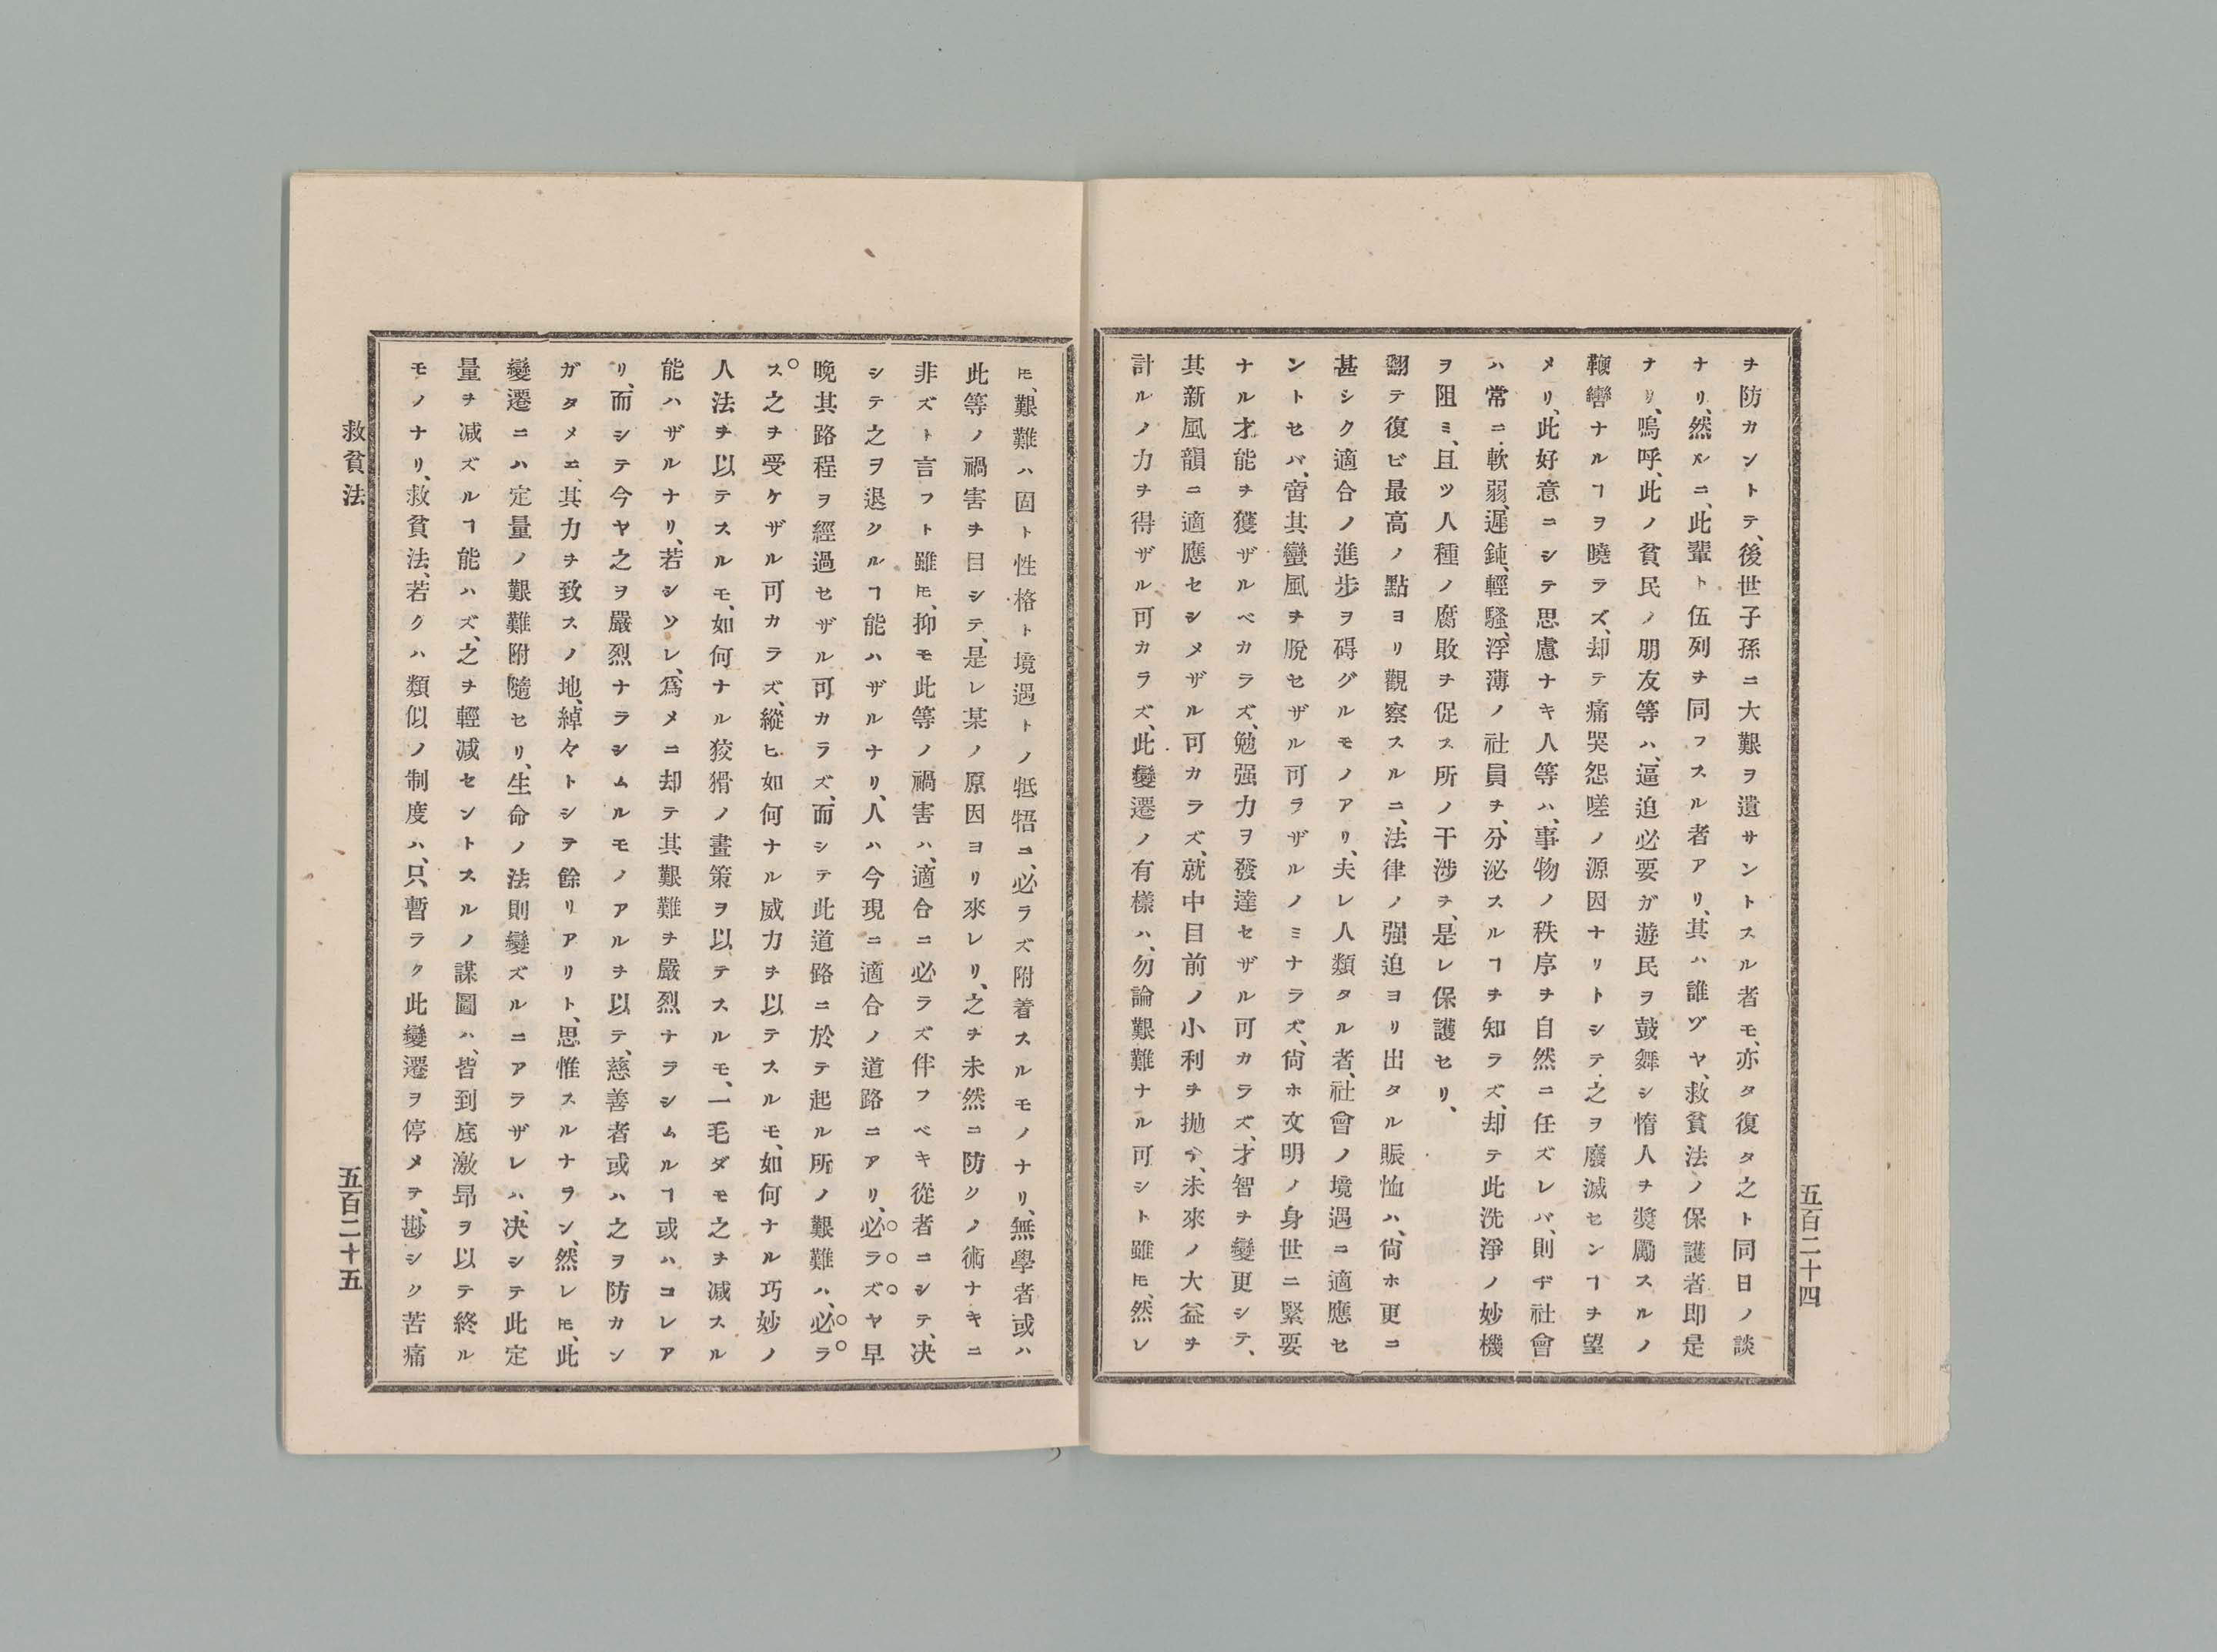 ヲ防カントテ、後世子孫ニ大艱ヲ遺サントスル者モ、亦タ復タ之ト同日ノ談
ナリ、然ルニ、此輩ト伍列ヲ同フスル者アリ、其ハ誰ヅヤ、救貧法ノ保護者即是
ナリ、嗚呼、此ノ貧民ノ朋友等ハ、逼迫必要ガ遊民ヲ鼓舞シ惰人ヲ奬勵スルノ
鞭轡ナルヿヲ曉ラズ、却テ痛哭怨嗟ノ源因ナリトシテ之ヲ廢滅センヿヲ望
メリ、此好意ニシテ思慮ナキ人等ハ、事物ノ秩序ヲ自然ニ任ズレバ、則チ社會
ハ常ニ軟弱、遲鈍、輕騷、浮薄ノ社員ヲ、分泌スルヿヲ知ラズ、却テ此洗淨ノ妙機
ヲ阻ミ、且ツ人種ノ腐敗ヲ促ス所ノ干渉ヲ、是レ保護セリ、
翻テ復ビ最高ノ點ヨリ觀察スルニ、法律ノ强迫ヨリ出タル賑恤ハ、尙ホ更ニ
甚シク適合ノ進步ヲ碍グルモノアリ、夫レ人類タル者、社會ノ境遇ニ適應セ
ントセバ、啻其蠻風ヲ脫セザル可ラザルノミナラズ、尙ホ文明ノ身世ニ緊要
ナル才能ヲ獲ザルベカラズ、勉强力ヲ發達セザル可カラズ、才智ヲ變更シテ、
其新風韻ニ適應セシメザル可カラズ、就中目前ノ小利ヲ抛ケ、未來ノ大益ヲ
計ルノ力ヲ得ザル可カラズ、此變遷ノ有樣ハ、勿論艱難ナル可シト雖𪜈、然レ
五百二十四
𪜈、艱難ハ固ト性格ト境遇トノ牴牾ニ、必ラズ附着スルモノナリ、無學者或ハ
此等ノ禍害ヲ目シテ、是レ某ノ原因ヨリ來レリ、之ヲ未然ニ防クノ術ナキニ
非ズト言フト雖𪜈、抑モ此等ノ禍害ハ、適合ニ必ラズ伴フベキ從者ニシテ、决
シテ之ヲ退クルヿ能ハザルナリ、人ハ今現ニ適合ノ道路ニアリ、必ラズヤ早
晩其路程ヲ經過セザル可カラズ、而シテ此道路ニ於テ起ル所ノ艱難ハ、必ラ
ス之ヲ受ケザル可カラズ、縱ヒ如何ナル威力ヲ以テスルモ、如何ナル巧妙ノ
人法ヲ以テスルモ、如何ナル狡猾ノ畫策ヲ以テスルモ、一毛ダモ之ヲ减スル
能ハザルナリ、若シソレ、爲メニ却テ其艱難ヲ嚴烈ナラシムルヿ或ハコレア
リ、而シテ今ヤ之ヲ嚴烈ナラシムルモノアルヲ以テ、慈善者或ハ之ヲ防カン
ガタメニ、其力ヲ致スノ地、綽々トシテ餘リアリト、思惟スルナラン、然レ𪜈、此
變遷ニハ定量ノ艱難附隨セリ、生命ノ法則變ズルニアラザレハ、决シテ此定
量ヲ减ズルヿ能ハズ、之ヲ輕减セントスルノ謀圖ハ、皆到底激昻ヲ以テ終ル
モノナリ、救貧法、若クハ類似ノ制度ハ、只暫ラク此變遷ヲ停メテ、尠シク苦痛
救貧法
五百二十五